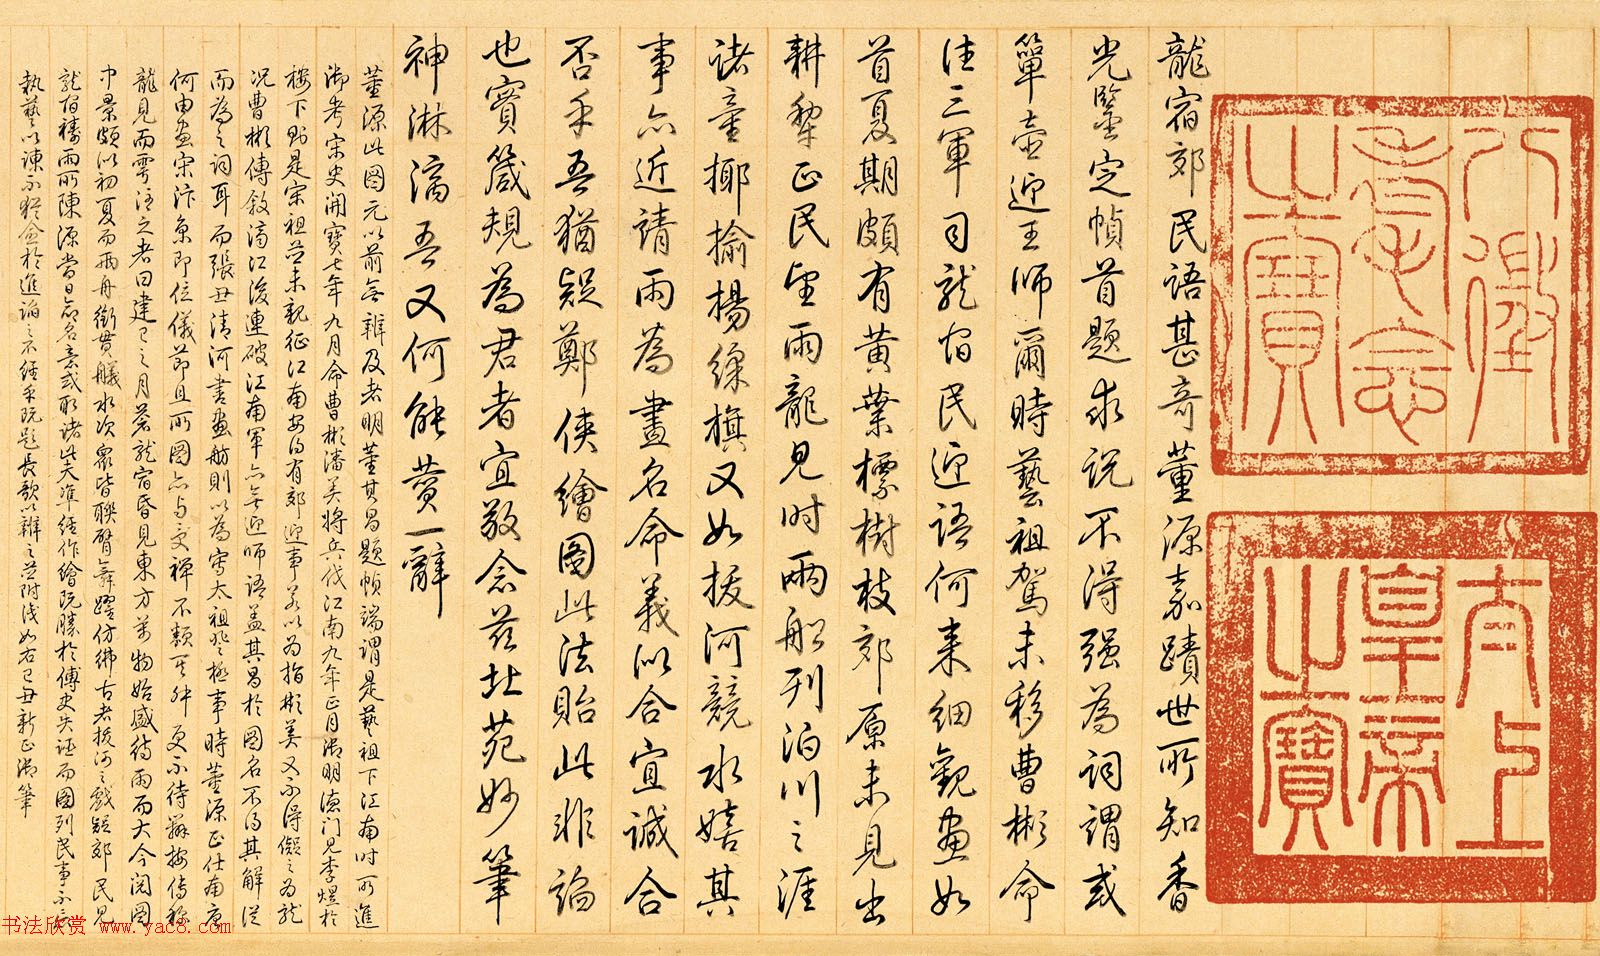 八徵耄念之寶
太上皇帝之寶
龍宿郊民語甚奇董源嘉蹟世所知香
光鑒定幀首題求說不得强為詞謂或
簞壺迎王師爾時藝祖駕未移曹彬命
往三軍司龍宿民迎語何来細觀畫如
首夏期頗有黄葉標樹枝郊原未見出
耕犂正民望雨龍見时雨船列泊川之涯
諸童揶揄楊綵旗又如拔河競水嬉其
事亦近請雨為畫名命義似合宜誠合
否乎吾猶疑鄭俠繪圖此法貽此非諂
也寳箴規為君者宜敬念兹北苑妙筆
神淋漓吾又何能贊一辭
董源此圖元以前無辨及者明董其昌題幀端謂是藝祖下江南时所進
御考宋史開寳七年九月命曹彬潘美将兵伐江南九年正月御明德门見李煜於
樓下則是宋祖並未親征江南安得有郊迎事若以為指彬美又不得儗之為龍
况曹彬傳敘濟江後連破江南軍亦無迎師語盖其昌於圖名不得其解従
而為之词耳而張丑清河書畫舫則以為寫太祖登極事時董源正仕南唐
何由畫宋汴京即位儀節且所圖亦与受禪不類其舛更不待辭按傳稱
龍見而雩注之者曰建巳之月蒼龍宿昏見東方萬物始盛待雨而大今閲圖
中景頗似初夏而兩舟銜貫艤水次眾皆聯臂舞躍仿彿古者拔河之戲疑郊民見
龍宿禱雨所陳源當日命名意或取諸此夫準經作繪阮勝於傳史失證而圖列民事亦
執藝以諫不猶愈於進諂之不經乎既題長歌以辨之並附淺如右己丑新正御筆
书法欣赏 www.yac8.com